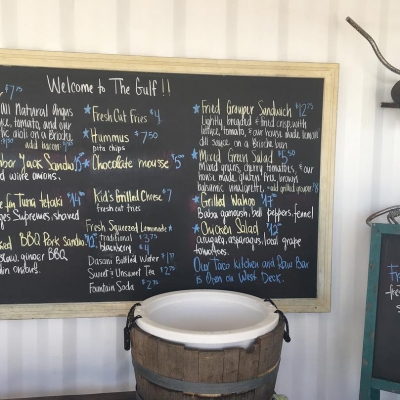 Welcome to The Gulf !!
$7.75
all Natural Angus
tomato, and our
aioli on a Brioche
add bacon
Jack Sandwi
and wire onions.
Tuna Tataki $14.00
Supremes, shaved
BBQ Pork Sandwi
slaw, ginger BBQ
onions.
Fresh Cut Fries $4
Hummus $7.50
pita chips
Chocolate mousse $5
Kid's Grilled Cheese $7
fresh cut fries
Fresh Squeezed Lemonade
traditional $3.75
blackberry $4
Dasani Bottled Water
Sweet & Unsweet Tea $2.50
Fountain Soda $2.50
Fried Grouper Sandwich
Lightly breaded & fried crisp, with
lettuce, tomato, & our house made lemon
dill sauce on a Brioche bun
Mixed Green Salad $5.50
Mixed grains, cherry tomatoes, & our
house made gluten free brown
balsamic vinaigrette. add grilled grouper
Grilled Wahoo $17.00
Baba ganoush, bell peppers, fennel
Chicken Salad
arugula, asparagus, local grape
tomatoes.
Our Taco Kitchen and Raw Bar
is Open on West Deck.